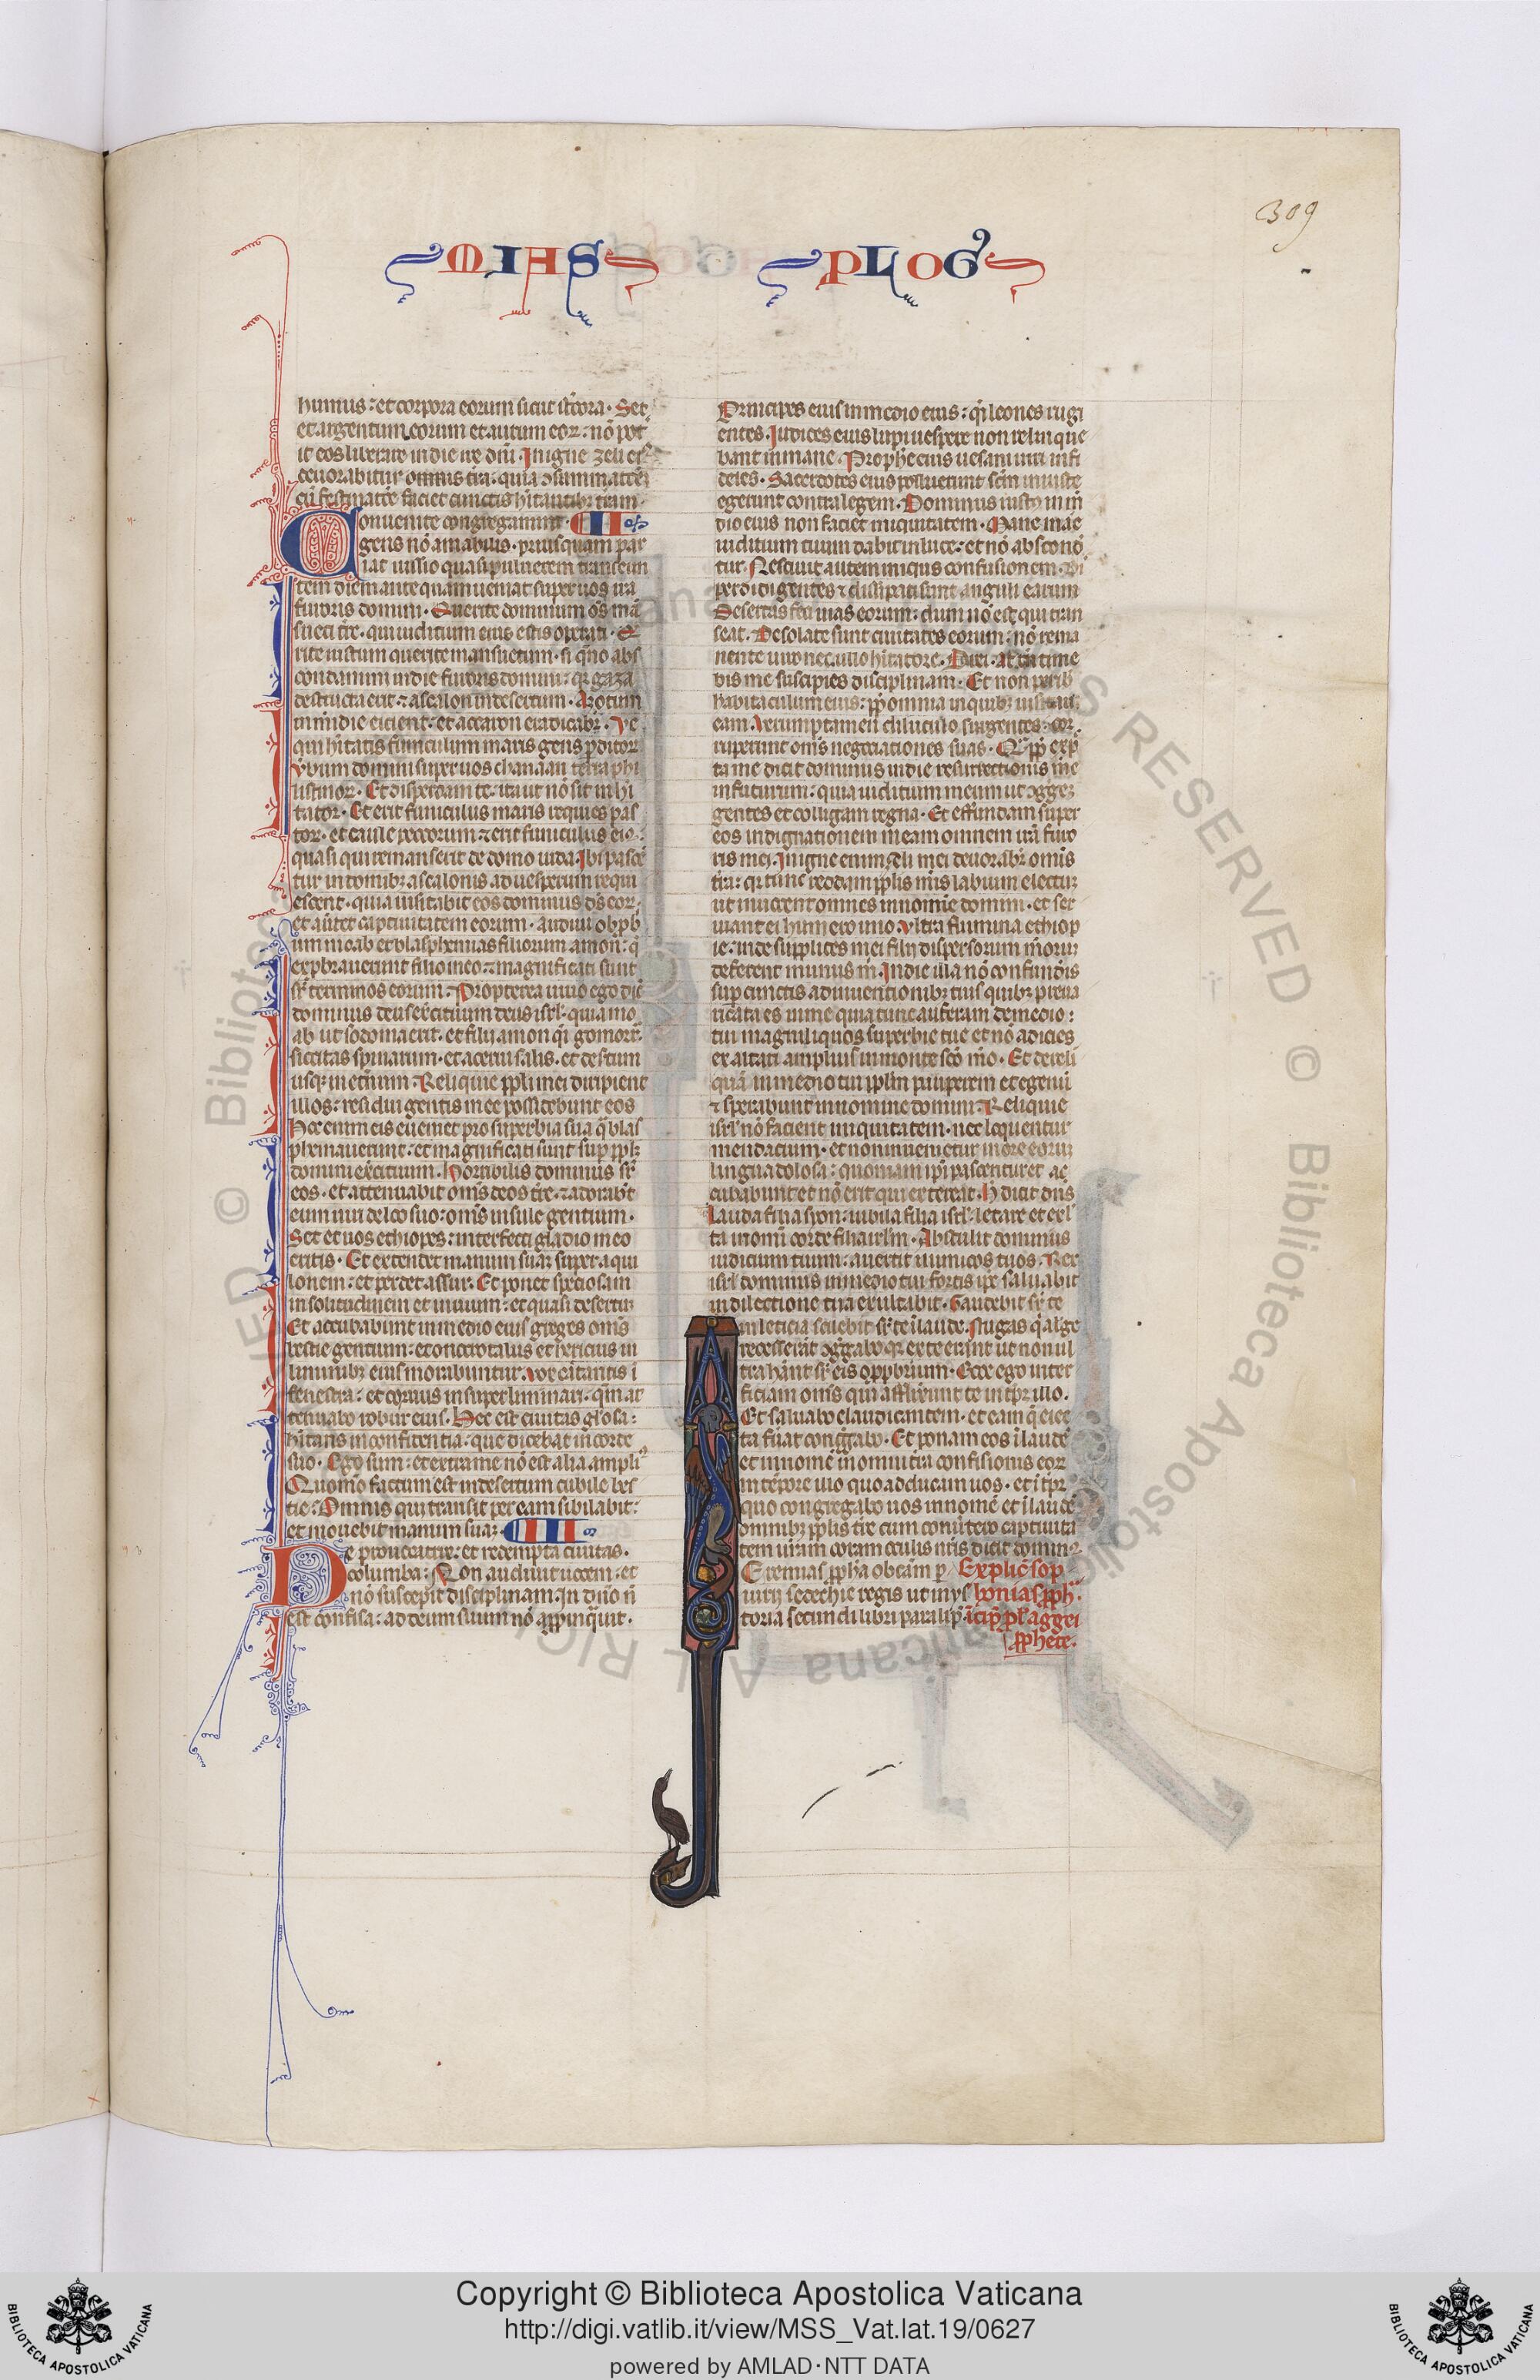 309
MIAS PLOG9
humus : et corpora eorum sicut stcora · Set
et argentum eorum et aurum eoꝝ : nō pot
it eos liberare in die ire dn̄i · In igne zeli eiꝰ
deuorabitur omnis tr̄a : quia ꝯsummatōē
cū festinatōe faciet cunctis hītantibꝫ terram ·
Conuenite congregamini · II
gens nō amabilis · priusquam par
iat iussio quasi puluerem transeun
tem diem antequam ueniat super uos ira
furoris domini · Querite dominum om̄s mā
sueti tr̄e · qui iudicium eius estis operati · Q̄
rite iustum querite mansuetum · si q̄mo abs
condamini in die furoris domini : qꝛ gaza
destructa erit · ⁊ ascalon in desertum · Azotum
in mīdie eicient : et accaron eradicabit̄ · Ve
qui hītatis funiculum maris gens ꝑditoꝝ
Vbum domini super uos chanaan terra phi
listinoꝝ · Et disperdam te · ita ut nō sit inhi
tatoꝝ · Et erit funiculus maris requies pas
toꝝ · et caule pecorum : ⁊ erit funiculus eiꝰ ·
quasi qui remanserit de domo iuda · Ibi pascē
tur in domibꝫ ascalonis · ad uesperum requi
escent · quia uisitabit eos dominus ds̄ eoꝝ ·
et auertet captiuitatem eorum · Audiui obꝓb
um moab et blasphemias filiorum amon : q̄
exprobrauerunt filio meo · ⁊ magnificati sunt
sr̄ terminos eorum · Propterea uiuo ego dic̄
dominus deus exercituum deus isrl̄ · quia mo
ab ut sodoma erit · et filii amon q̄i gomorr̄ ·
siccitas spinarum · et acerui salis · et desertum
usqꝫ in et̄num · Reliquie ppl̄i mei diripient
illos : residui gentis mee possidebunt eos
Hoc enim eis eueniet pro superbia sua q̄ blas
phemauerunt : et magnificati sunt suꝑ ppl̄m
domini exc̄ituum · Horribilis dominus sr̄
eos · et attenuabit om̄s deos tr̄e · ⁊ adorabt̄
eum uiri de loco suo : om̄s insule gentium ·
Set et uos ethiopes : interfecti gladio meo
eritis · Et extendet manum suaꝫ super aqui
lonem : et perdet assur · Et ponet speciosam
in solitudinem et inuium : et quasi desertuꝫ
Et accubabunt in medio eius greges om̄s
bestie gentium : et onocrotalus et hericius in
liminibꝫ eius morabuntur · uox cantantis ī
fenestra : et coruus in superliminari · q̄m at
tenuabo robur eius · Hec est ciuitas gl̄osa :
hītans in confidentia : que dicebat in corde
suo · Ego sum : et extra me nō est alia ampliꝰ
Quomō factum est in desertum cubile bes
tie : Omnis qui transit per eam sibilabit :
et mouebit manum suaꝫ · III
Ve prouocatrix : et redempta ciuitas ·
columba : Non audiuit uocem : et
nō suscepit disciplinam · In dn̄o n̄
est confisa : ad deum suum nō appinquit ·
Principes eius in medio eius : q̄i leones rugi
entes · Iudices eius lupi uespere non relinque
bant in mane · Prophe eius uesani uiri infi
deles · Sacerdotes eius polluerunt scm̄ iniuste
egerunt contra legem · Dominus iustꝰ in m̄
dio eius non faciet iniquitatem · Mane mae
iuditium suum dabit in luce : et nō abscond
tur · Nesciuit autem iniqus confusionem · Di
perdidi gentes ⁊ dissipati sunt anguli earum
Desertas feci uias eorum : dum nō est qui tran
seat · Desolate sunt ciuitates eorum : nō rema
nente uiro nec ullo hītatore · Dixi · at tn̄ time
bis me suscipies disciplinam · Et non perib
habitaculum eius : ꝓp omnia in quibꝫ uisitaui
eam · Verumptamen diluculo surgentes : cor
ruperunt om̄s negotiationes suas ·
ta me dicit dominus in die resurrectionis me
in futurum : quia iuditium meum ut ꝯggeꝫ
gentes et colligam regna · Et effundam super
eos indignationem meam omnem irā furo
ris mei · In igne enim zeli mei deuorabit̄ omīs
tr̄a : qꝛ tunc reddam ppl̄is m̄is labium electuꝫ
ut inuocent omnes in nomīe domini · et ser
uiant ei humero uno · Vltra flumina ethiop
ie : inde supplices mei filii dispersorum m̄orum
deferent munus m̄ · In die illa nō confundīs
suꝑ cunctis adinuentionibꝫ tuis quibꝫ preua
ricata es in me quia tunc auferam de medio :
tui magniloquos superbie tue et nō adicies
exaltari amplius in monte scō m̄o · Et dereli
quā in medio tui ppl̄m pauperem et egenū
⁊ sperabunt in nomine domini · Reliquie
isrl̄ nō facient iniquitatem · nec loquentur
mendacium · et non inuenietur in ore eoruꝫ
lingua dolosa : quoniam ipī pascentur et ac
cubabunt et nō erit qui exterreat · H̄ dicit dn̄s
Lauda filia syon : iubila filia isrl̄ · letare et exl̄
ta in omī corde filia ierl̄m · Abstulit dominus
iudicium tuum : auertit inimicos tuos · Rex
isrl̄ dominus in medio tui fortis ipe saluabit
in dilectione tua exultabit · Gaudebit sr̄ te
in leticia silebit sr̄ te ī laude · Nugas q̄ a lege
recesserāt ꝯgregabo qꝛ ex te erānt ut non ul
tra hānt sr̄ eis oppbrium · Ecce ego inter
ficiam om̄s qui afflixerunt te in tp̄r illo ·
Et saluabo claudicantem · et eam q̄ eiec
ta fuāt congregabo · Et ponam eos ī laudē
et in nomē in omī tr̄a confusionis eoꝝ
in tempore illo quo adducam uos · et ī tp̄r
quo congregabo uos in nomē et ī laudē
omnibꝫ ppl̄is tr̄e cum conūtero captiuita
tem uram coram oculis ur̄is dicit dominꝰ
Ieremias ppha ob cām ꝑ Explic̄ sop
iurii sedechie regis ut in ys honias pph̄ ·
toria secundi libri paralip̄ · īcip̄ ꝓl̄ aggei
pphete ·
Copyright © Biblioteca Apostolica Vaticana
http://digi.vatlib.it/view/MSS_Vat.lat.19/0627
powered by AMLAD·NTT DATA
BIBLIOTECA APOSTOLICA VATICANA
BIBLIOTECA APOSTOLICA VATICANA